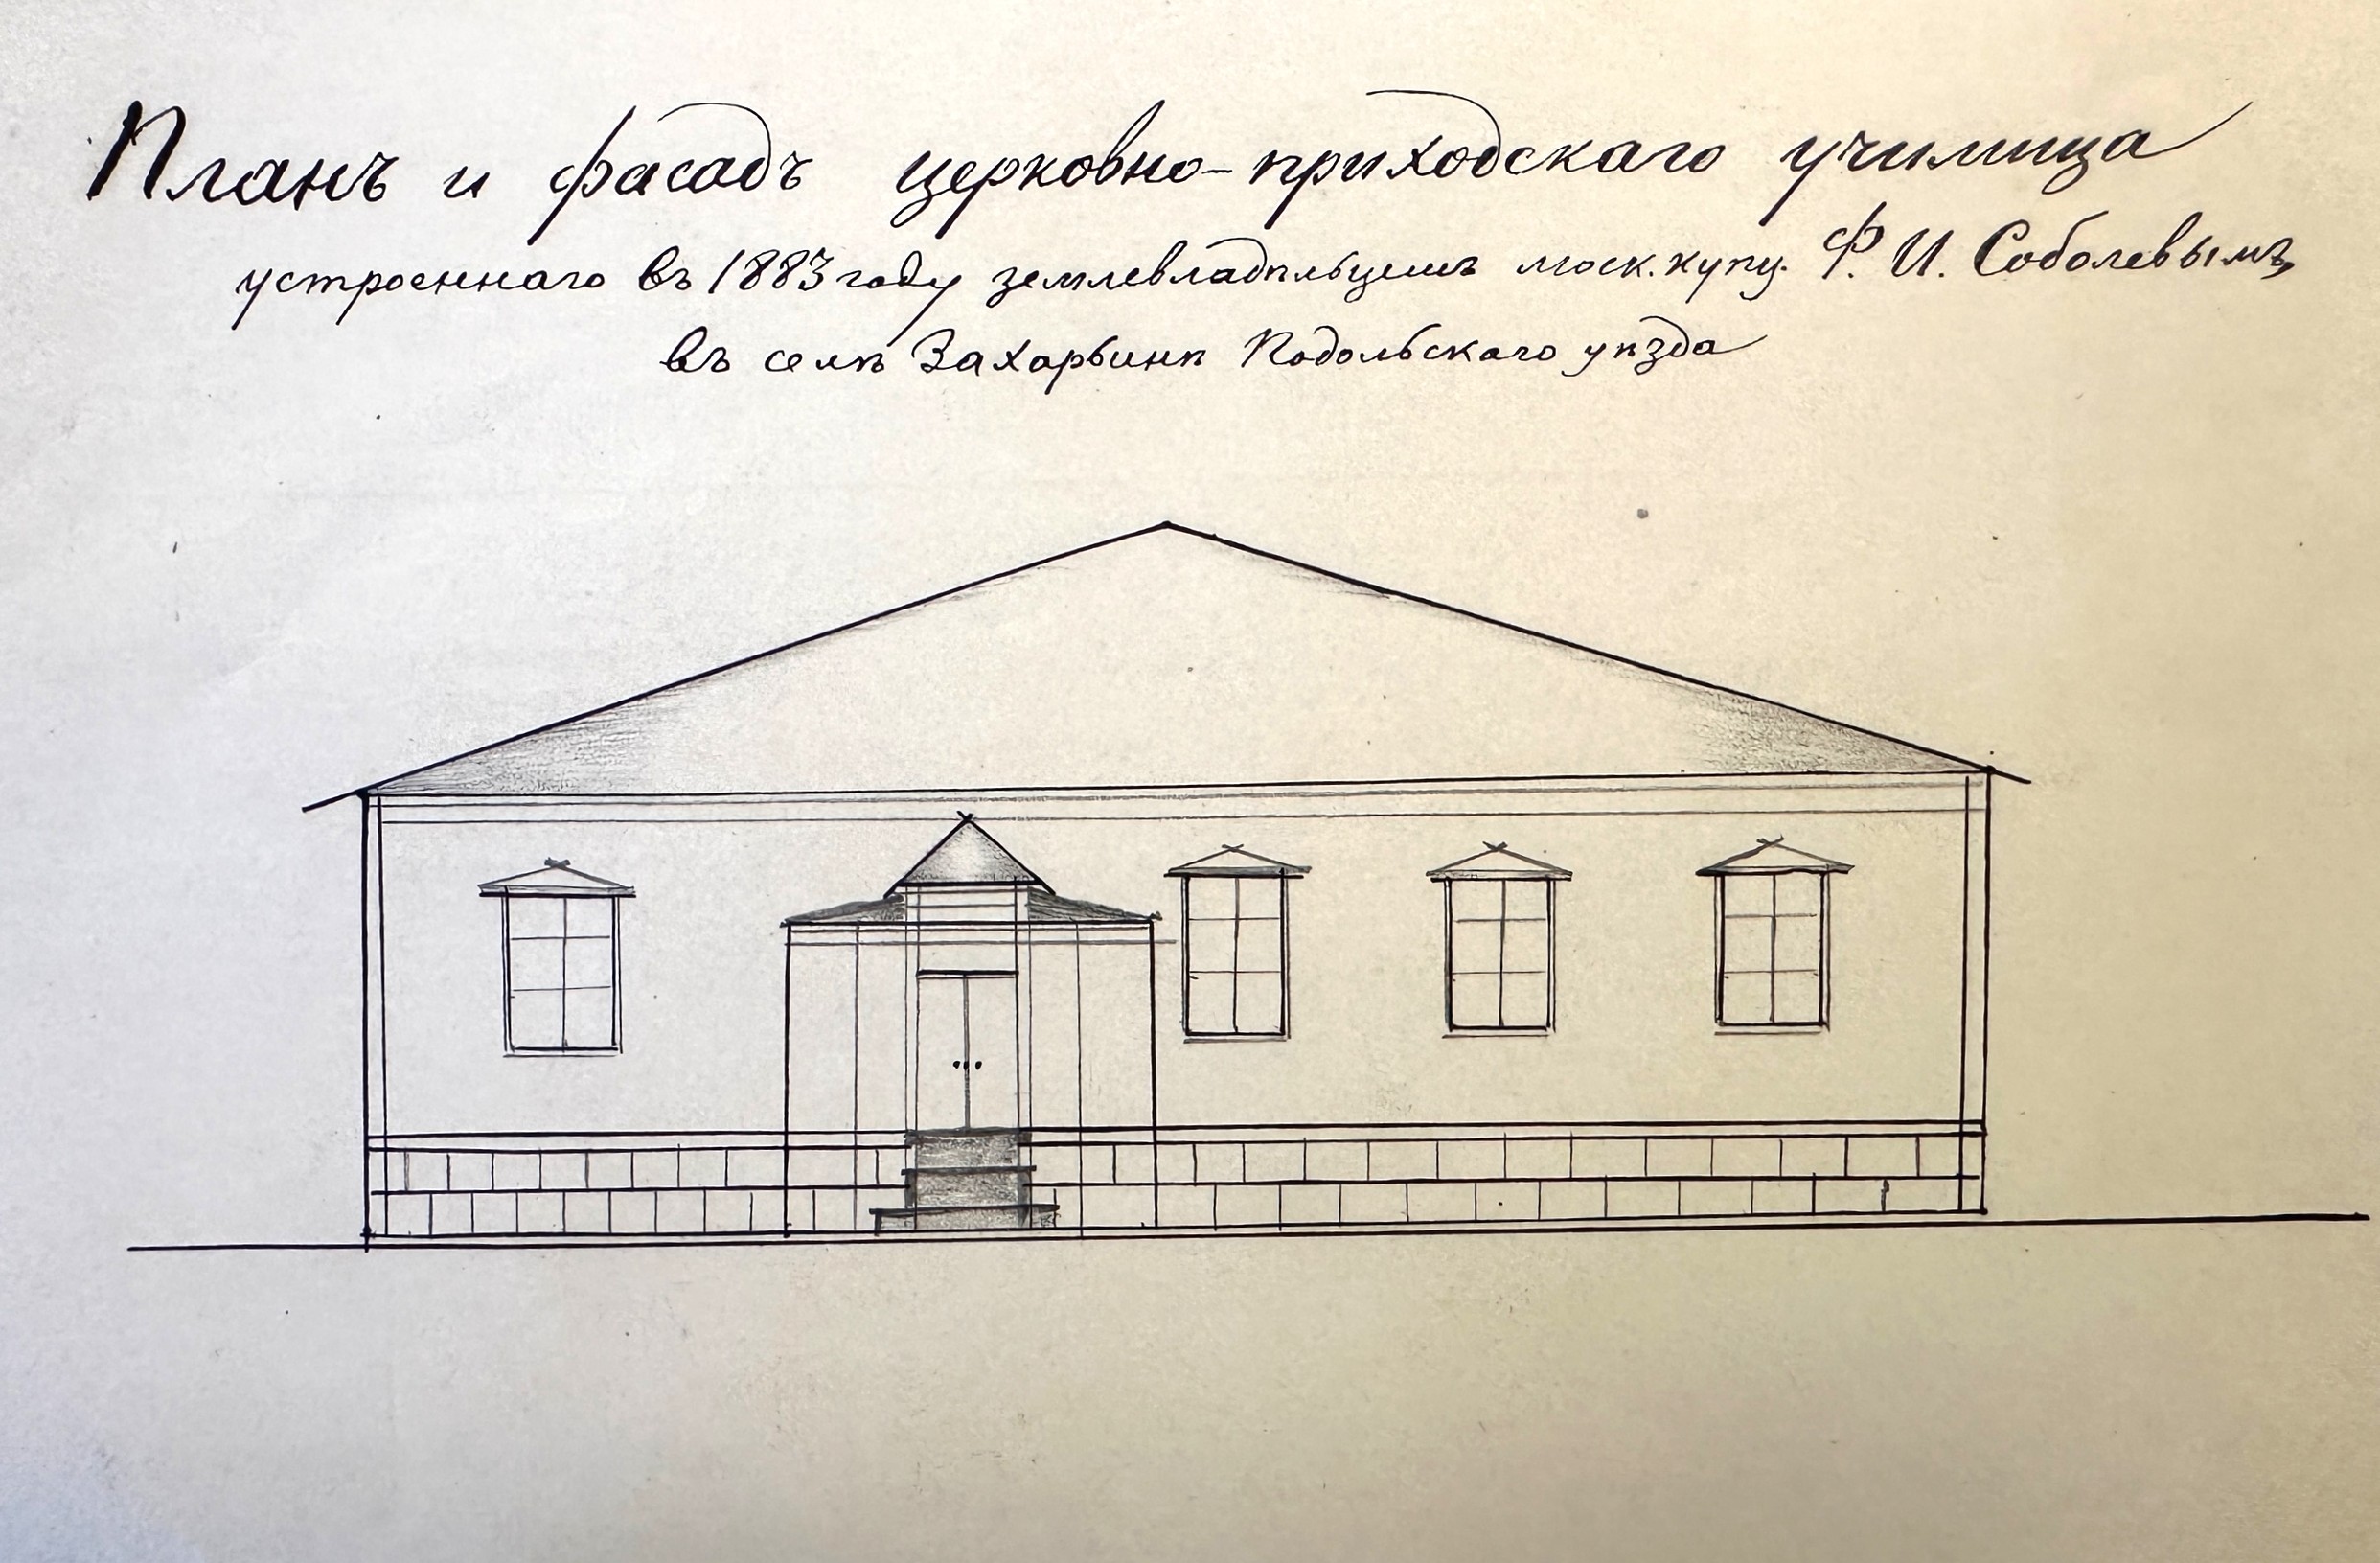 Планъ и фасадъ церковно-приходскаго училища
устроеннаго въ 1883 году землевладѣльцемъ моск. купц. Ф. И. Соболевымъ
въ селѣ Захарьинѣ Подольскаго уѣзда